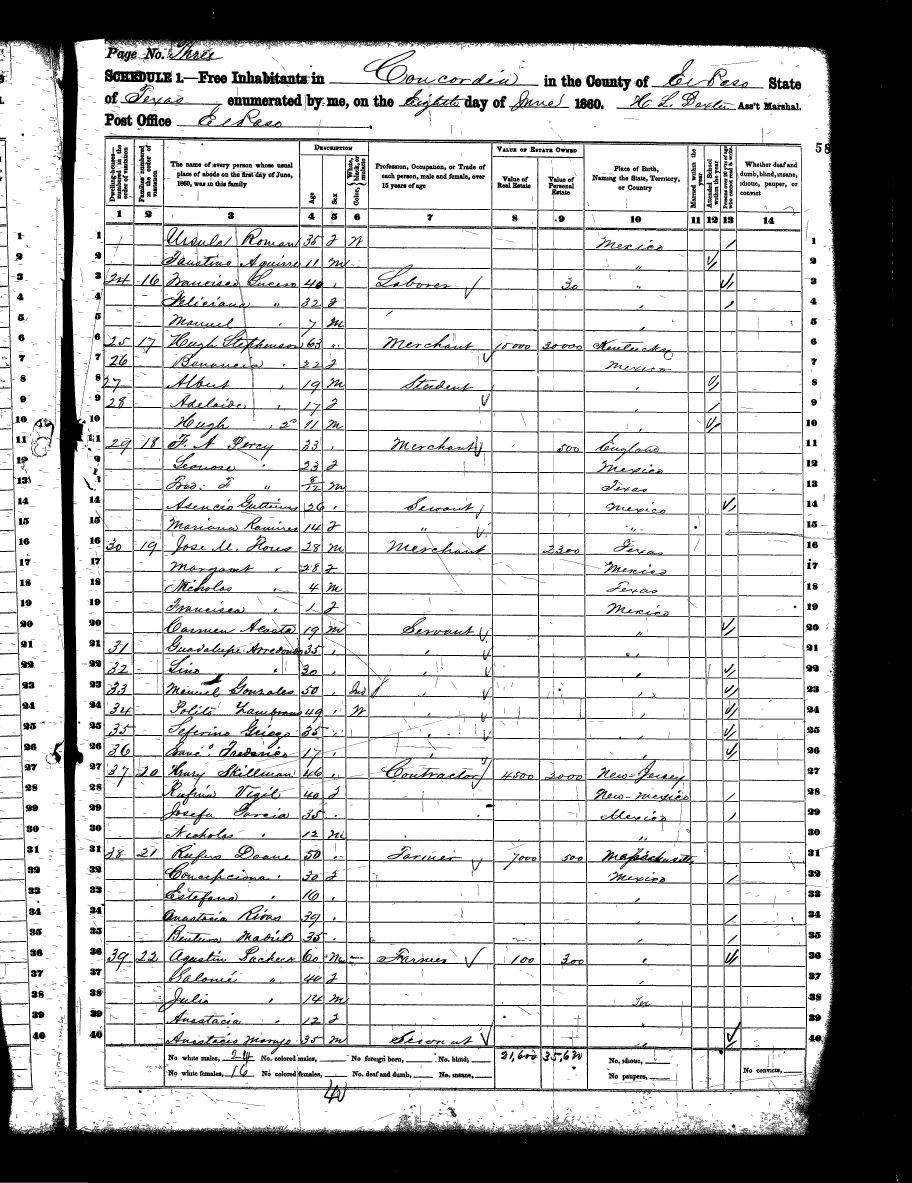 Page No. Three
SCHEDULE 1.—Free Inhabitants in Concordia in the County of El Paso State
of Texas enumerated by me, on the Eighth day of June 1860. H L Ass't Marshal.
Post Office El Paso
58
DESCRIPTION VALUE OF ESTATE OWNED
Dwelling-houses—numbered in the order of visitation Families numbered in the order of visitation The name of every person whose usual place of abode on the first day of June, 1860, was in this family Age Sex Color, White, black, or mulatto Profession, Occupation, or Trade of each person, male and female, over 15 years of age Value of Real Estate Value of Personal Estate Place of Birth, Naming the State, Territory, or Country Married within the year Attended School within the year Persons over 20 y'rs of age who cannot read & write Whether deaf and dumb, blind, insane, idiotic, pauper, or convict
1 2 3 4 5 6 7 8 9 10 11 12 13 14
1 Ursula Roman 35 F W Mexico / 1
2 Faustino Aguirre 11 M " / 2
3 24 16 Francisco Lucero 40 , Laborer 30 " / 3
4 Feliciana " 32 F , / 4
5 Manuel , 7 M , 5
6 25 17 Hugh Stephenson 63 " Merchant 10000 30000 Kentucky 6
7 26 Benancia , 22 F Mexico 7
8 27 Albert , 19 M Student , / 8
9 28 Adelaide , 17 F , / 9
10 Hugh , 2º 11 M , / 10
11 29 18 F. A Percy 33 , Merchant 500 England 11
12 Leonore , 23 F Mexico 12
13 Fred. F " 8/12 M Texas 13
14 Asencio Gutierres 26 , Servant Mexico / 14
15 Mariana Ramires 14 F " " 15
16 30 19 Jose M. Flores 28 M Merchant 2300 Texas 16
17 Margaret , 28 F Mexico 17
18 Nicholas , 4 M Texas 18
19 Francisca , 1 F Mexico 19
20 Carmen Acosta 19 M Servant " / 20
21 31 Guadalupe Arredondo 35 , , " 21
22 32 Lino , 30 , , , / 22
23 33 Manuel Gonzales 50 , Ind , , / 23
24 34 Polito Zambrano 49 , W , , / 24
25 35 Seferino Griego 35 , , , / 25
26 36 Franc.º Frederico 17 , , , / 26
27 37 20 Henry Skillman 46 , Contractor 4500 2000 New-Jersey 27
28 Rufina Vigil 40 F New-Mexico / 28
29 Josefa Garcia 35 , Mexico / 29
30 Nicholas , 12 M " 30
31 38 21 Rufus Doane 50 , Farmer 7000 500 Massachusetts 31
32 Concepciona , 30 F Mexico / 32
33 Estefana , 16 , , 33
34 Anastacia Rivas 39 , / 34
35 Bentura Madrid 35 , , / 35
36 39 22 Agustin Pacheco 60 M — Farmer 100 300 , / 36
37 Salomé " 40 F , 37
38 Julio , 14 M Tex 38
39 Anastacia , 12 F " 39
40 35 M Servant , / 40
No white males, 24 No. colored males, No foreign born, No. blind, 21,600 35,630 No. idiotic,
No white females, 16 No. colored females, No. deaf and dumb, No. insane, No. paupers, No convicts,
40